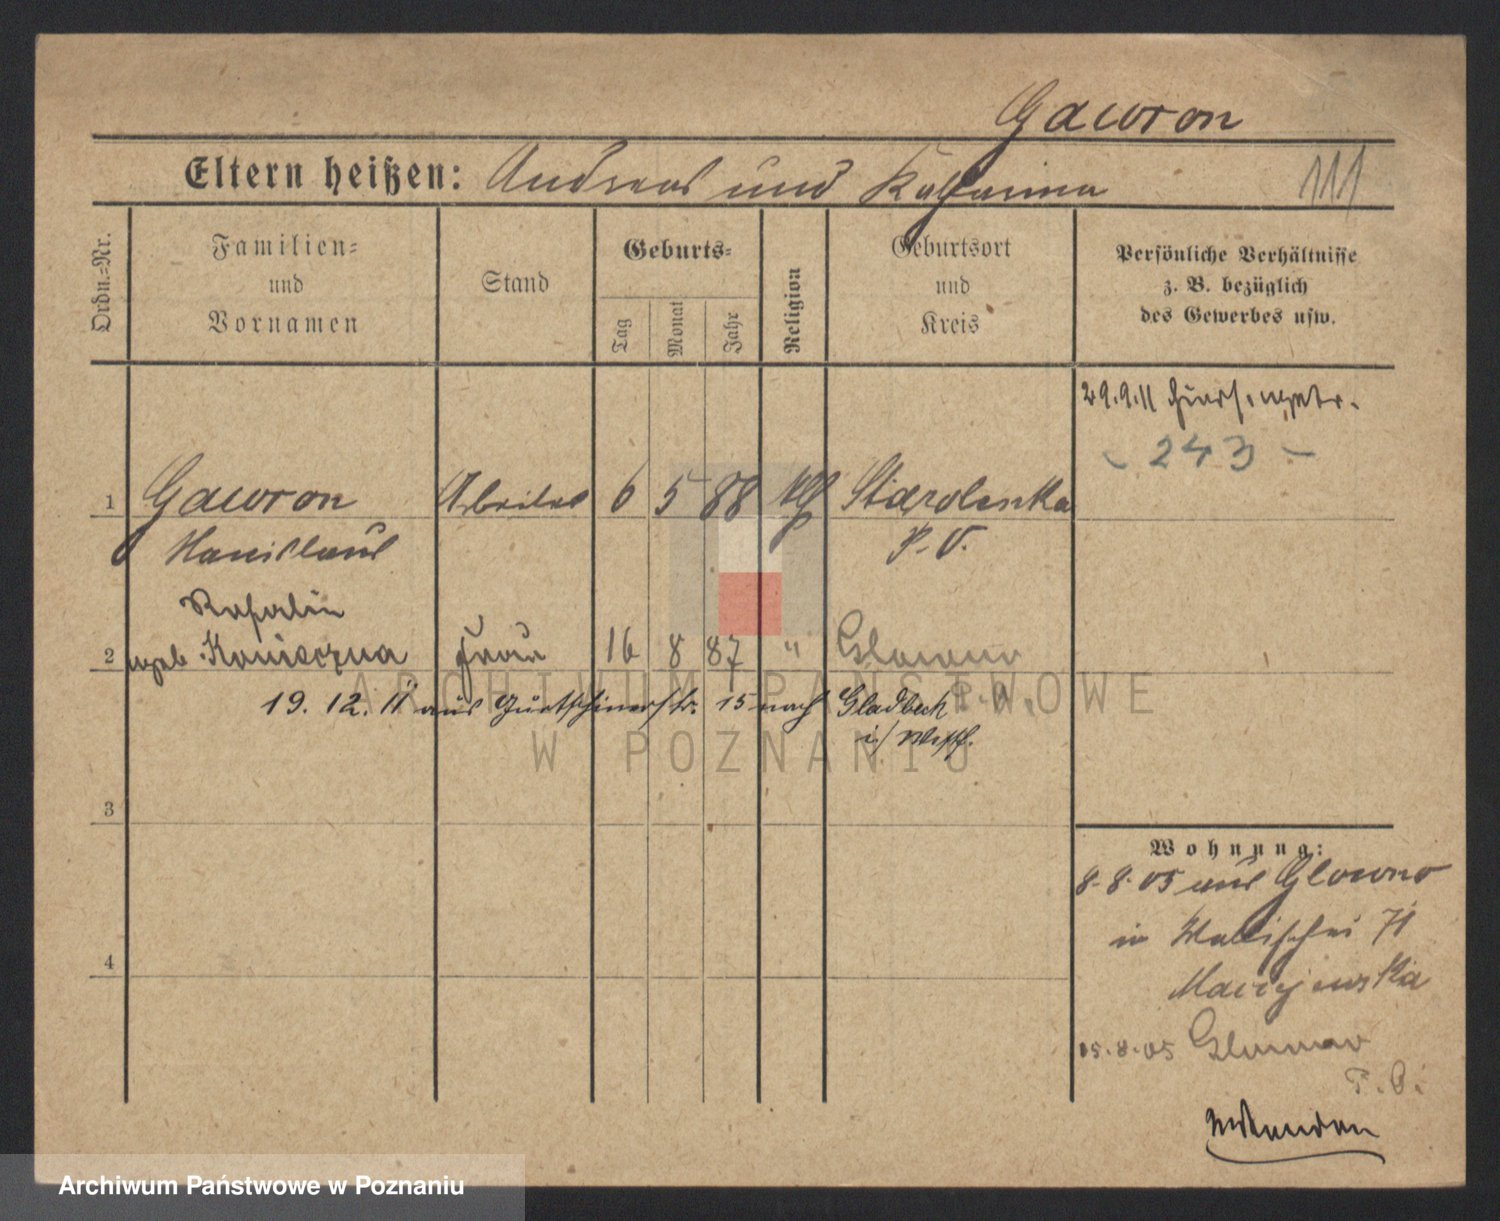 Gawron
Eltern heißen: Andreas und Katharina
111
Ordn.-Nr.
Familien-
und
Vornamen
Stand
Geburts-
Tag
Monat
Jahr
Religion
Geburtsort
und
Kreis
Persönliche Verhältnisse
z. B. bezüglich
des Gewerbes usw.
29.9.11
- 243 -
1 Gawron Arbeiter 6 5 88 kth Starolenka
Stanislaus P. O.
Rosalie
2 geb. Konieczna Frau 16 8 87 " Glowno
P. O.
19. 12. 11 aus 15 nach Gladbeck
i/ Westf.
3
4
Wohnung:
8.8.05 aus Glowno
in Wallischei 71
Maciejewska
15.8.05 Glowno
P. O.
ARCHIWUM PAŃSTWOWE
W POZNANIU
Archiwum Państwowe w Poznaniu